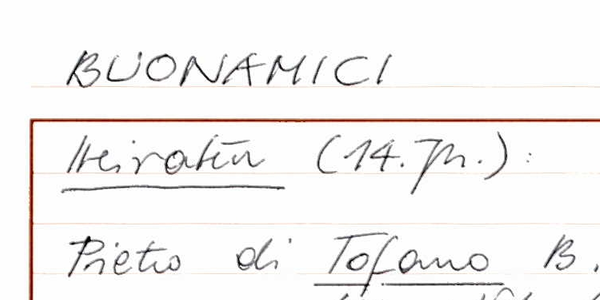 BUONAMICI
Heiraten (14. Jh.):
Pietro di Tofano B.